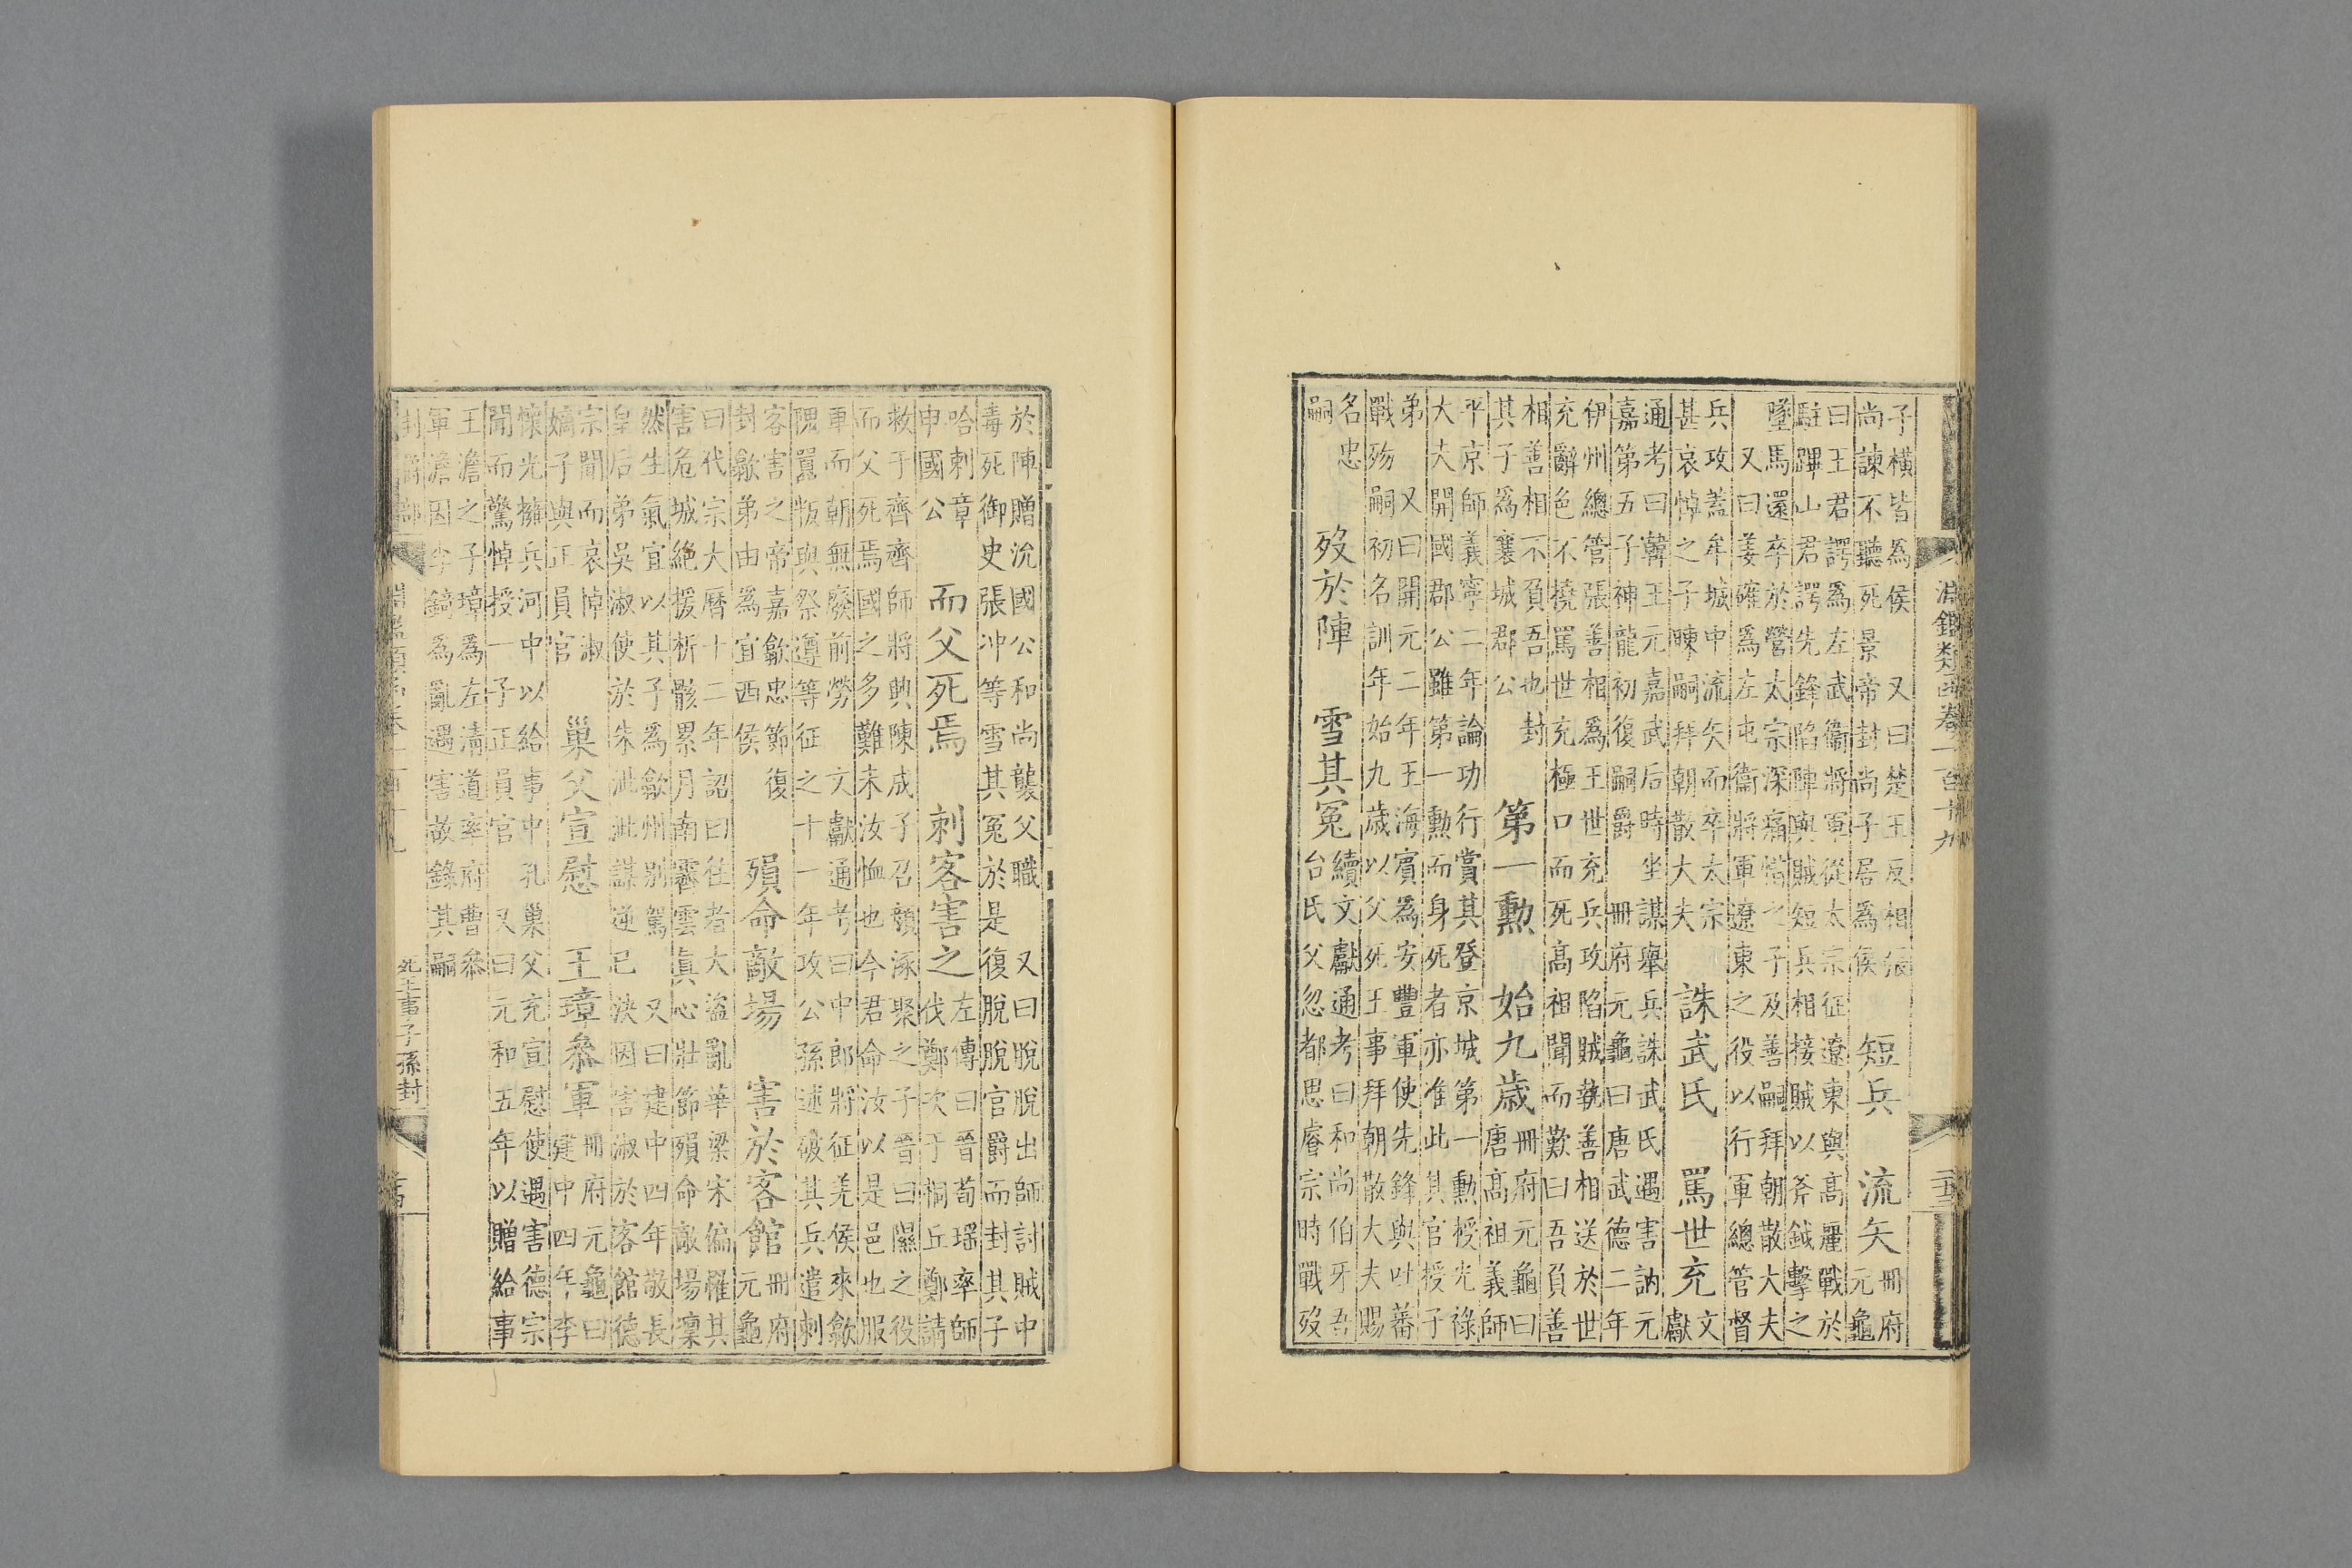 淵鑑類函卷一百十九
二十三
子橫皆為侯　又曰楚王反相張
尚諫不聽死景帝封尚子居為侯
短兵　流矢
冊府
元龜
曰王君諤為左武衞將軍從太宗征遼東與高麗戰於
駐蹕山君諤先鋒陷陣與賊短兵相接賊以斧鉞擊之
墜馬還卒於營太宗深痛惜之子及善嗣拜朝散大夫
又曰姜確為左屯衞將軍遼東之役以行軍總管督
兵攻蓋牟城中流矢而卒太宗
甚哀悼之子暕嗣拜朝散大夫
誅武氏　罵世充
文
獻
通考曰韓王元嘉武后時坐謀舉兵誅武氏遇害訥元
嘉第五子神龍初復嗣爵　冊府元龜曰唐武德二年
伊州總管張善相為王世充兵攻陷賊執善相送於世
充辭色不撓罵世充極口而死高祖聞而歎曰吾負善
相善相不負吾也封
其子為襄城郡公
第一勳　始九歲
冊府元龜曰
唐高祖義師
平京師義寧二年論功行賞其登京城第一勳授光祿
大夫開國郡公雖第一勳而身死者亦准此其官授子
弟　又曰開元二年王海賓為安豐軍使先鋒與吐蕃
戰歿嗣初名訓年始九歲以父死王事拜朝散大夫賜
名忠
嗣
歿於陣　雪其冤
續文獻通考曰和尚伯牙吾
台氏父忽都思睿宗時戰歿
於陣贈沇國公和尚襲父職　又曰脫脫出師討賊中
毒死御史張冲等雪其冤於是復脫脫官爵而封其子
哈剌章
申國公
而父死焉　刺客害之
左傳曰晉荀瑶率師
伐鄭次于桐丘鄭請
救于齊齊師將興陳成子召顏涿聚之子晉曰隰之役
而父死焉國之多難未汝恤也今君命汝以是邑也服
車而朝無廢前勞　文獻通考曰中郎將征羌侯來歙
隗囂叛與祭遵等征之十一年攻公孫述破其兵遣刺
客害之帝嘉歙忠節復
封歙弟由為宜西侯
殞命敵場　害於客館
冊府
元龜
曰代宗大曆十二年詔曰往者大盜亂華梁宋偏罹其
害危城絕援析骸累月南霽雲真心壯節殞命敵場凜
然生氣宜以其子為歙州別駕　又曰建中四年敬長
皇后弟吳淑使於朱泚泚謀逆已決因害淑於客館德
宗聞而哀悼淑
嫡子與正員官
巢父宣慰　王璋參軍
冊府元龜曰
建中四年李
懷光擁兵河中以給事中孔巢父充宣慰使遇害德宗
聞而驚悼授一子正員官　又曰元和五年以贈給事
王澹之子璋為左清道率府曹參
軍澹因李錡為亂遇害故錄其嗣
封爵部
淵鑑類函卷一百十九
死王事子孫封